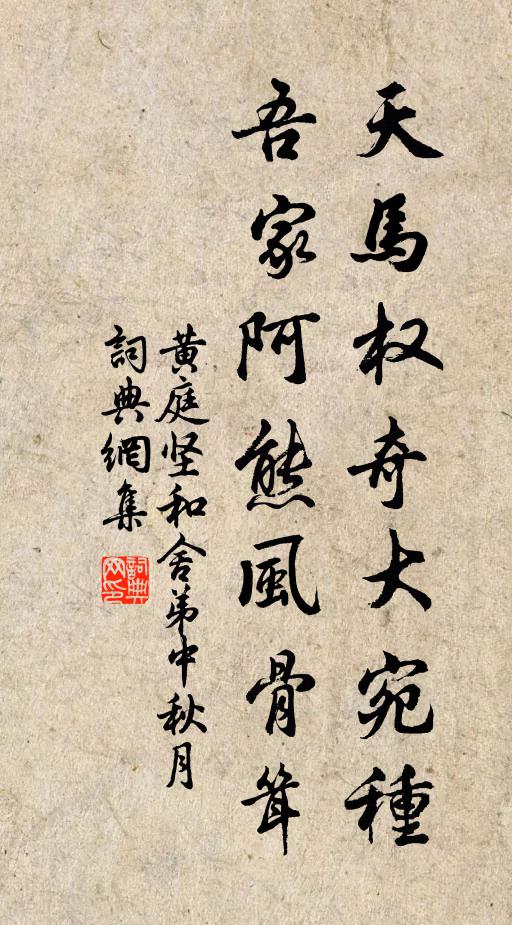 天馬权奇大宛種
吾家阿熊風骨聳
黄庭坚和舍弟中秋月
詞典網集
詞典网印